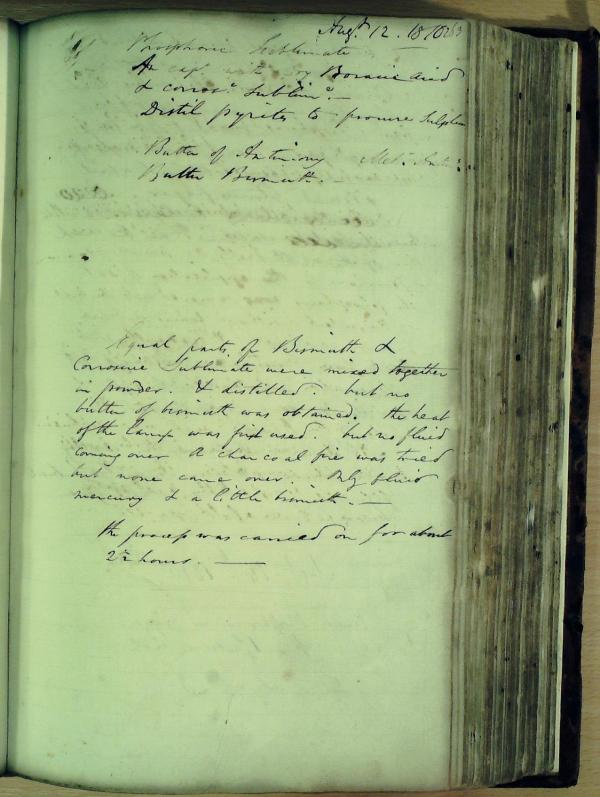 Augt 12. 1810
Phosphoric Sublimate
An expt with dry Boracic Acid
& corros. Sublime. —
Distil pyrites to procure Sulphur
Butter of Antimony Met.
Butter Bismuth. —
Equal parts of Bismuth &
Corrosive Sublimate were mixed together
in powder. & distilled. but no
butter of bismuth was obtained. the heat
of the lamp was first used. but no fluid
coming over A charcoal fire was tried
but none came over. Only fluid
mercury & a little bismuth. —
the process was carried on for about
2½ hours. —